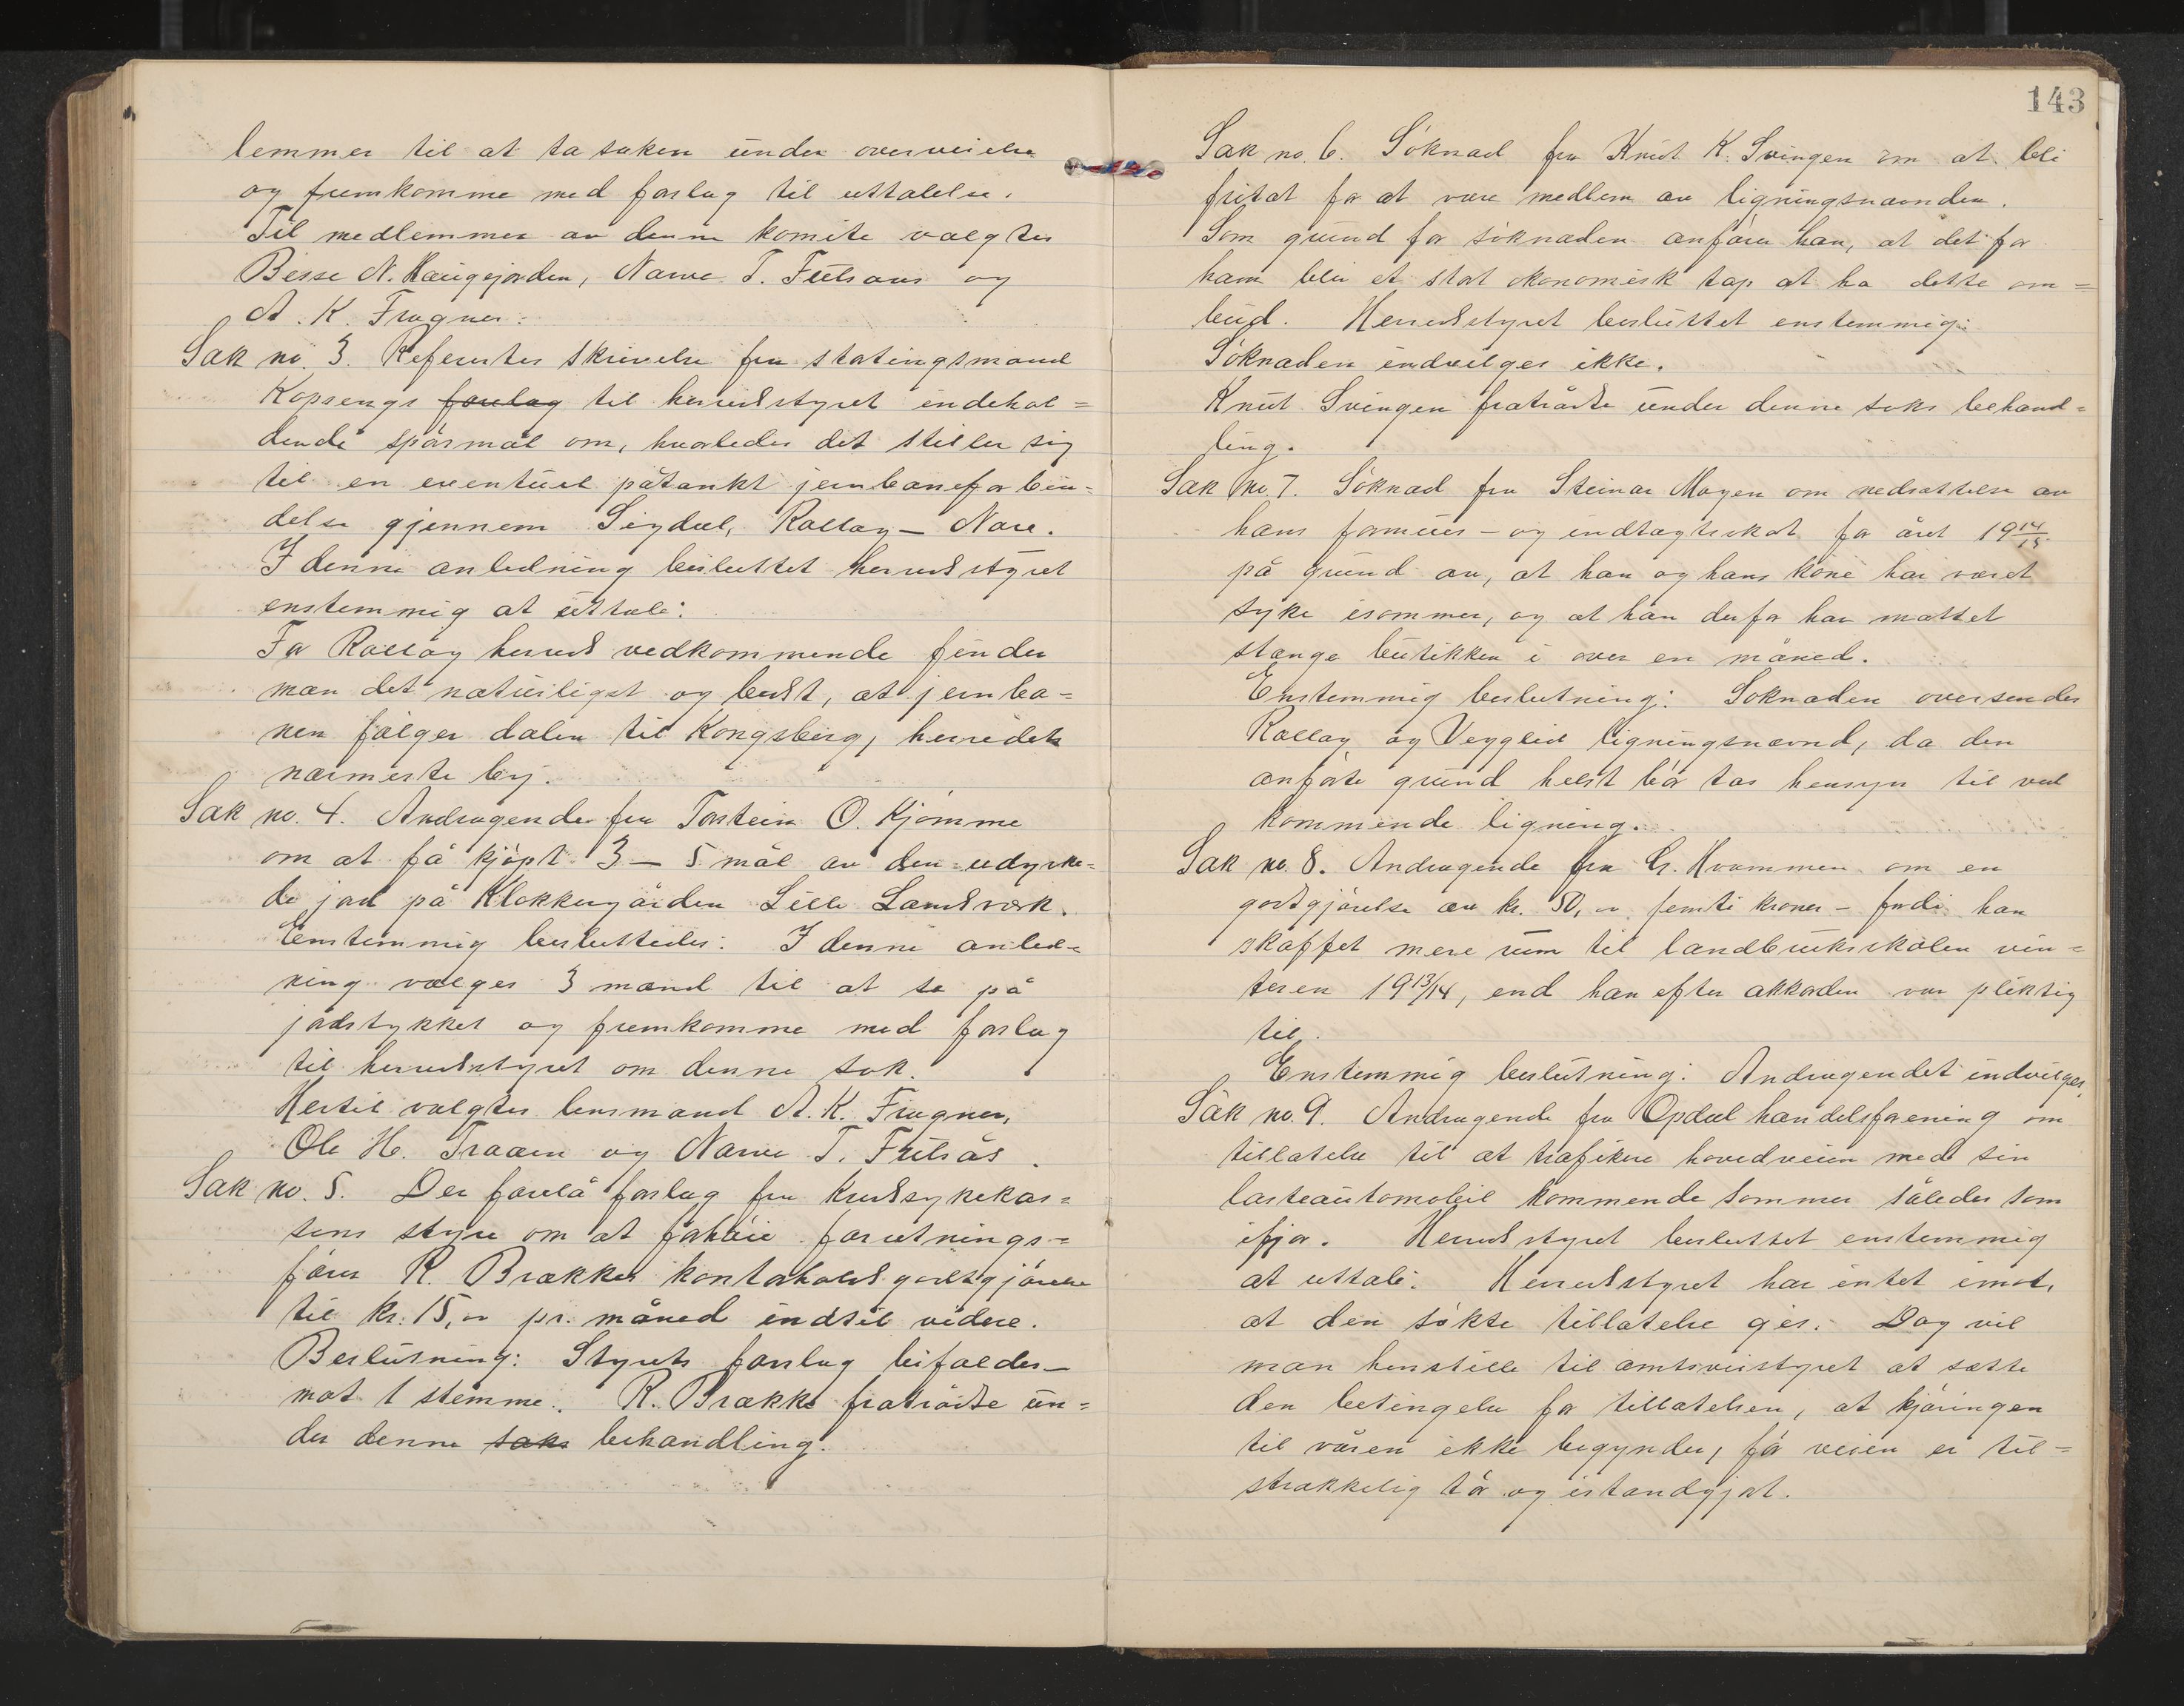 lemmer til at ta saken under overveielse
og fremkomme med forslag til uttalelse.
Til medlemmer av denne komite valgtes
Besse N. Haugejorden, Narve T. Fulsaas og
A. K. Fragner.
Sak no. 3. Refertes skrivelse fra stortingsmand
Kopsengs forslag til herredstyret indehol=
dende spørsmål om, hvorledes det stiller sig
til en eventuel påtænkt jernbaneforbin-
delse gjennem Sigdal, Rollag – Nore.
I denne anledning besluttet herredstyret
enstemmig at uttale:
For Rollag herred vedkommende finder
man det naturligst og bedst, at jernba-
nen følger dalen til Kongsberg, herredets
nærmeste by.
Sak no. 4. Andragende fra Torstein O. Kjømme
om at få kjøpt 3 – 5 mål av den udyrke-
de jord på Klokkergården Lille Landsverk.
Enstemmig besluttedes: I denne anled-
ning vælges 3 mænd til at se på
jordstykket og fremkomme med forslag
til herredstyret om denne sak.
Hertil valgtes lensmand A. K. Fragner,
Ole H. Traaen og Narve T. Fulsås.
Sak no. 5. Der forelå forslag fra kredssykekas=
sens styre om at forhøie forretnings-
fører R. Brækkes kontorholdsgodtgjørelse
til kr. 15,00 pr. måned indtil videre.
Beslutning: Styrets forslag bifaldes –
mot 1 stemme. R. Brække fratrådte un=
der denne saks behandling.
143
Sak no. 6. Søknad fra Knut K. Svingen om at bli
fritat for at være medlem av ligningsnævnden.
Som grund for søknaden anfører han, at det for
ham blir et stort økonomisk tap at ha dette om=
bud. Herredstyret besluttet enstemmig:
Søknaden indvilges ikke.
Knut Svingen fratrådte under denne saks behand=
ling.
Sak no. 7. Søknad fra Steinar Mogen om nedsættelse av
hans formues- og indtægtsskat for året 1914/15
på grund av, at han og hans kone har været
syke isommer, og at han derfor har måttet
stænge butikken i over en måned.
Enstemmig beslutning: Søknaden oversendes
Rollag og Veggli ligningsnævnd, da den
anførte grund helst bør tas hensyn til ved
kommende ligning.
Sak no. 8. Andragende fra G. Kvammen om en
godtgjørelse av kr. 50,00 femti kroner – fordi han
skaffet mere rum til landbruksskolen vin=
teren 1913/14, end han efter akkorden var pliktig
til.
Enstemmig beslutning: Andragendet indvilges.
Sak no. 9. Andragende fra Opdal handelsforening om
tillatelse til at trafikere hovedveien med sin
lasteautomobil kommende sommer således som
ifjor. Herredstyret besluttet enstemmig
at uttale: Herredstyret har intet imot,
at den søkte tillatelse gis. Dog vil
man henstille til amtsveistyret at sætte
den betingelse for tillatelsen, at kjøringen
til våren ikke begynder, før veien er til=
strækkelig tør og istandgjort.